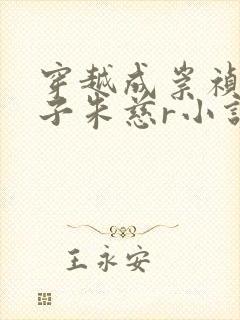 穿越成崇禎
子朱慈r小說
王永安